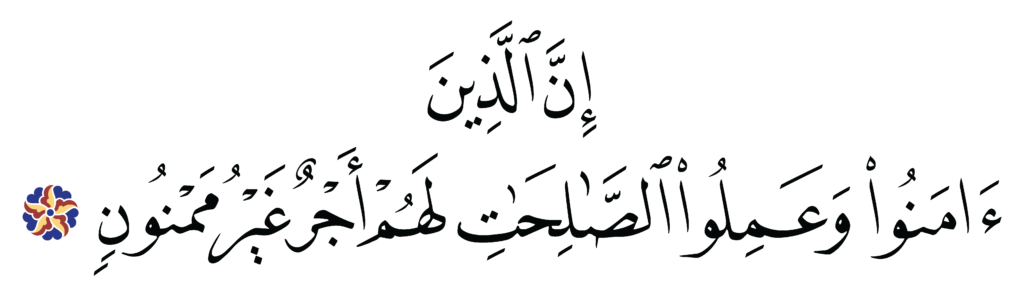 إِنَّ ٱلَّذِينَ
ءَامَنُوا۟ وَعَمِلُوا۟ ٱلصَّـٰلِحَـٰتِ لَهُمْ أَجْرٌ غَيْرُ مَمْنُونٍ